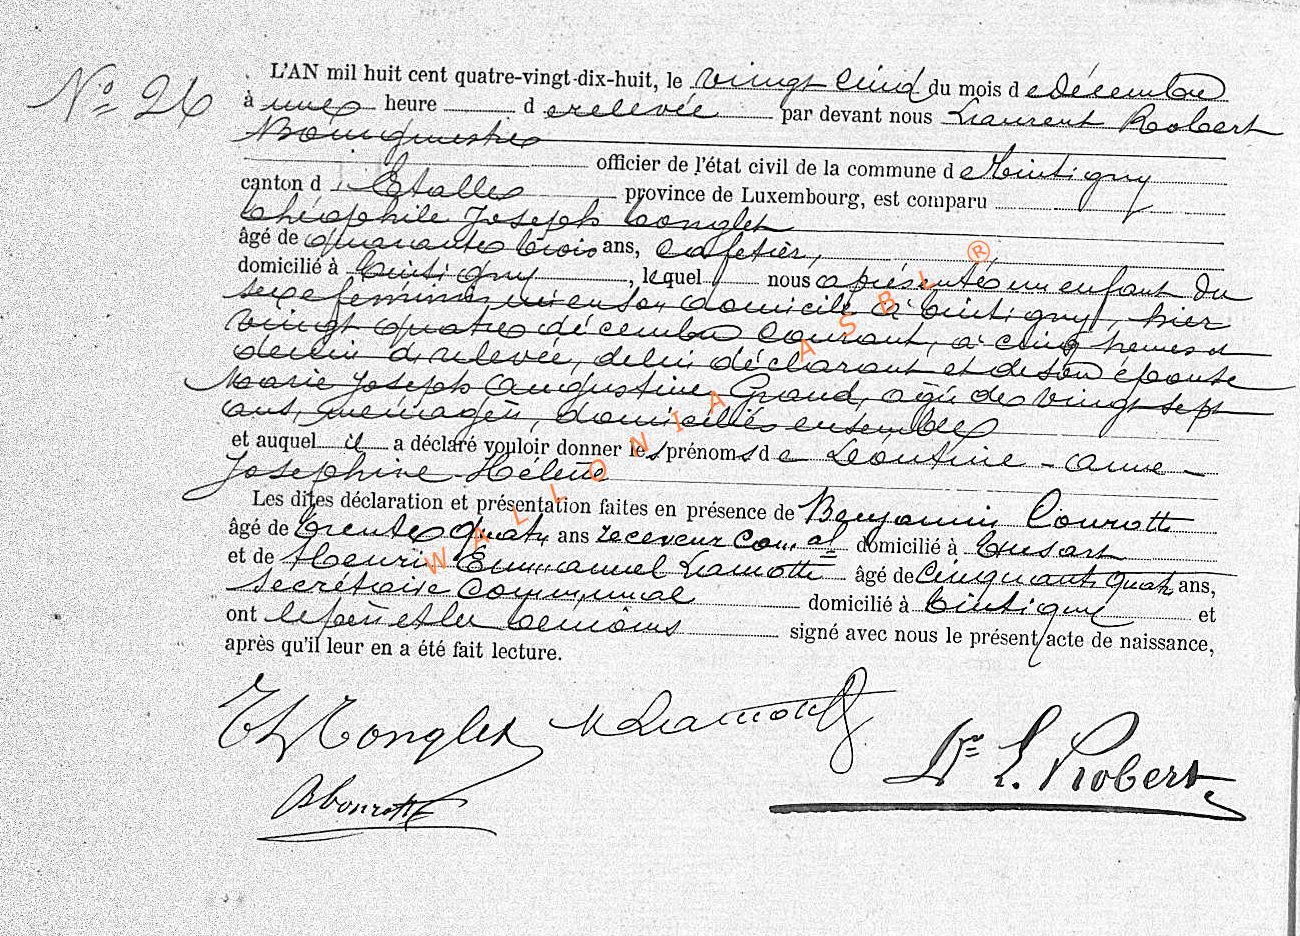 N° 26
L'AN mil huit cent quatre-vingt-dix-huit, le vingt cinq du mois d e décembre
à une heure d e relevée par devant nous Laurent Robert
Bourgmestre
officier de l'état civil de la commune d e Tintigny
canton d' Etalle province de Luxembourg, est comparu
théophile Joseph Tonglet
âgé de quarante trois ans, cafetier,
domicilié à Tintigny, lequel nous a présenté un enfant du
sexe féminin, né en son domicile à Tintigny, hier
vingt quatre décembre courant, à cinq heures et
demie de relevée, de lui déclarant et de son épouse
Marie Joseph Augustine Graud, agée de vingt sept
ans, ménagère, domiciliés ensemble
et auquel il a déclaré vouloir donner les prénoms d e Léontine - Anne -
Joséphine Hélène
Les dites déclaration et présentation faites en présence de Benjamin Courotte
âgé de trente quatre ans receveur com.al domicilié à
et de Henri Emmanuel Lamotte âgé de cinquante quatre ans,
secrétaire communal domicilié à Tintigny et
ont le père et les témoins signé avec nous le présent acte de naissance,
après qu'il leur en a été fait lecture.
Th Tonglet Lamotte
Dr L. Robert
B Courotte
WALLONIA ASBL ®